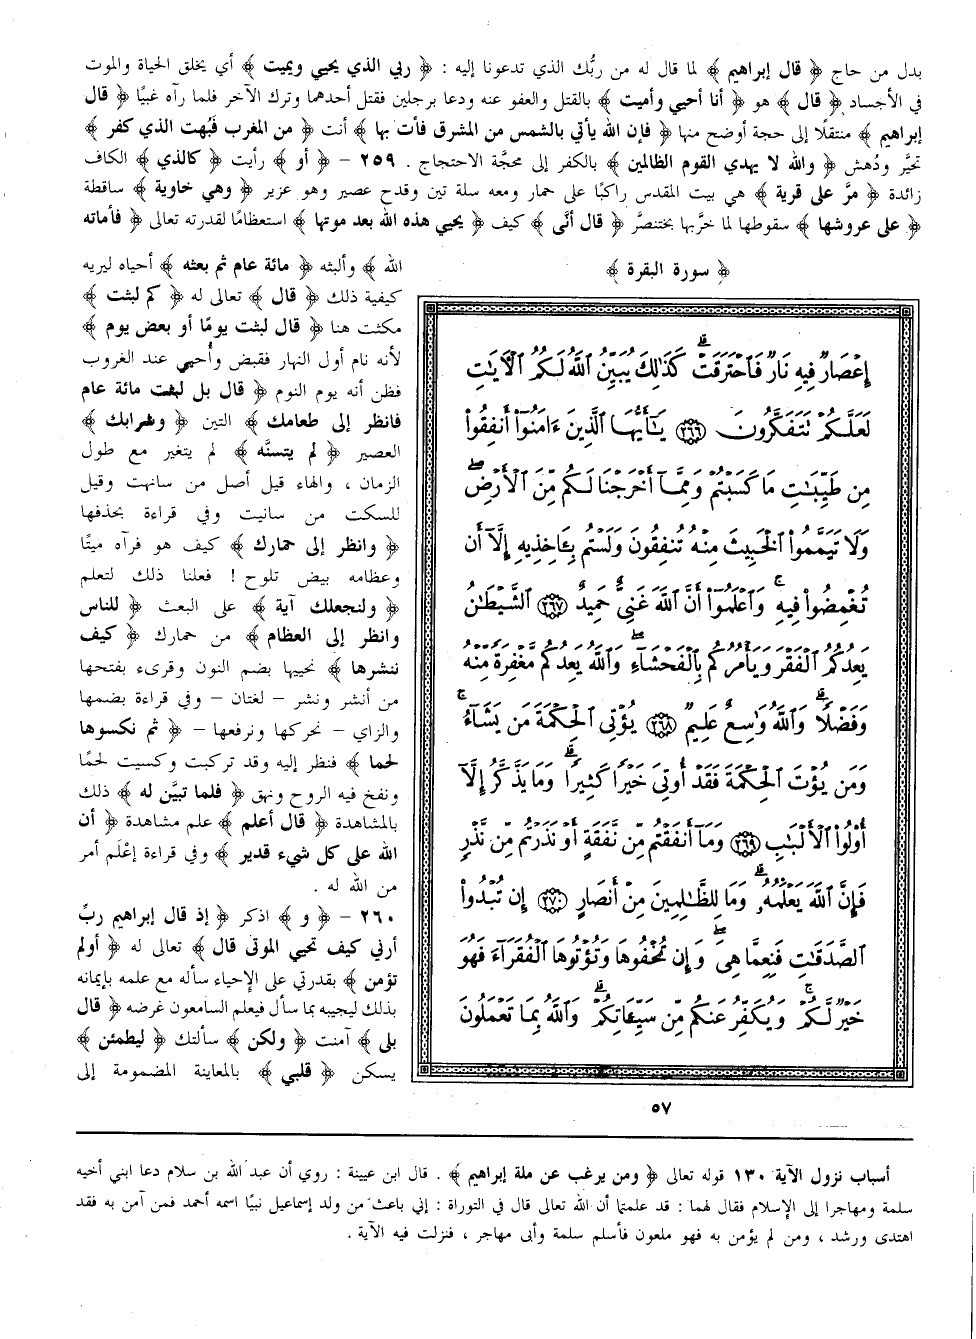 بدل من حاج ﴿ قال إبراهيم ﴾ لما قال له من ربُّك الذي تدعونا إليه : ﴿ ربي الذي يحيي ويميت ﴾ أي يخلق الحياة والموت
في الأجساد ﴿ قال ﴾ هو ﴿ أنا أحيي وأميت ﴾ بالقتل والعفو عنه ودعا برجلين فقتل أحدهما وترك الآخر فلما رآه غبيًا ﴿ قال
إبراهيم ﴾ منتقلًا إلى حجة أوضح منها ﴿ فإن الله يأتي بالشمس من المشرق فأت بها ﴾ أنت ﴿ من المغرب فبُهت الذي كفر ﴾
تحيَّر ودُهش ﴿ والله لا يهدي القوم الظالمين ﴾ بالكفر إلى محجَّة الاحتجاج . ٢٥٩ - ﴿ أو ﴾ رأيت ﴿ كالذي ﴾ الكاف
زائدة ﴿ مرَّ على قرية ﴾ هي بيت المقدس راكبًا على حمار ومعه سلة تين وقدح عصير وهو عزير ﴿ وهي خاوية ﴾ ساقطة
﴿ على عروشها ﴾ سقوطها لما خرَّبها بختنصرَّ ﴿ قال أنَّى ﴾ كيف ﴿ يحيي هذه الله بعد موتها ﴾ استعظامًا لقدرته تعالى ﴿ فأماته
الله ﴾ وألبثه ﴿ مائة عام ثم بعثه ﴾ أحياه ليريه
كيفية ذلك ﴿ قال ﴾ تعالى له ﴿ كم لبثت ﴾
مكثت هنا ﴿ قال لبثت يومًا أو بعض يوم ﴾
لأنه نام أول النهار فقبض وأُحيي عند الغروب
فظن أنه يوم النوم ﴿ قال بل لبثت مائة عام
فانظر إلى طعامك ﴾ التين ﴿ وشرابك ﴾
العصير ﴿ لم يتسنَّه ﴾ لم يتغير مع طول
الزمان ، والهاء قيل أصل من سانهت وقيل
للسكت من سانيت وفي قراءة بحذفها
﴿ وانظر إلى حمارك ﴾ كيف هو فرآه ميتًا
وعظامه بيض تلوح ! فعلنا ذلك لتعلم
﴿ ولنجعلك آية ﴾ على البعث ﴿ للناس
وانظر إلى العظام ﴾ من حمارك ﴿ كيف
ننشرها ﴾ نحييها بضم النون وقرىء بفتحها
من أنشر ونشر - لغتان - وفي قراءة بضمها
والزاي - نحركها ونرفعها - ﴿ ثم نكسوها
لحما ﴾ فنظر إليه وقد تركبت وكسيت لحمًا
ونفخ فيه الروح ونهق ﴿ فلما تبيَّن له ﴾ ذلك
بالمشاهدة ﴿ قال أعلم ﴾ علم مشاهدة ﴿ أن
الله على كل شيء قدير ﴾ وفي قراءة إعْلَم أمر
من الله له .
٢٦٠ - ﴿ و ﴾ اذكر ﴿ إذ قال إبراهيم ربِّ
أرني كيف تحيي الموتى قال ﴾ تعالى له ﴿ أولم
تؤمن ﴾ بقدرتي على الإحياء سأله مع علمه بإيمانه
بذلك ليجيبه بما سأل فيعلم السامعون غرضه ﴿ قال
بلى ﴾ آمنت ﴿ ولكن ﴾ سألتك ﴿ ليطمئن ﴾
يسكن ﴿ قلبي ﴾ بالمعاينة المضمومة إلى
﴿ سورة البقرة ﴾
إِعۡصَارٞ فِيهِ نَارٞ فَٱحۡتَرَقَتۡۗ كَذَٰلِكَ يُبَيِّنُ ٱللَّهُ لَكُمُ ٱلۡأٓيَٰتِ
لَعَلَّكُمۡ تَتَفَكَّرُونَ ٢٦٦ يَٰٓأَيُّهَا ٱلَّذِينَ ءَامَنُوٓاْ أَنفِقُواْ
مِن طَيِّبَٰتِ مَا كَسَبۡتُمۡ وَمِمَّآ أَخۡرَجۡنَا لَكُم مِّنَ ٱلۡأَرۡضِۖ
وَلَا تَيَمَّمُواْ ٱلۡخَبِيثَ مِنۡهُ تُنفِقُونَ وَلَسۡتُم بِـَٔاخِذِيهِ إِلَّآ أَن
تُغۡمِضُواْ فِيهِۚ وَٱعۡلَمُوٓاْ أَنَّ ٱللَّهَ غَنِيٌّ حَمِيدٌ ٢٦٧ ٱلشَّيۡطَٰنُ
يَعِدُكُمُ ٱلۡفَقۡرَ وَيَأۡمُرُكُم بِٱلۡفَحۡشَآءِۖ وَٱللَّهُ يَعِدُكُم مَّغۡفِرَةٗ مِّنۡهُ
وَفَضۡلٗاۗ وَٱللَّهُ وَٰسِعٌ عَلِيمٞ ٢٦٨ يُؤۡتِي ٱلۡحِكۡمَةَ مَن يَشَآءُۚ
وَمَن يُؤۡتَ ٱلۡحِكۡمَةَ فَقَدۡ أُوتِيَ خَيۡرٗا كَثِيرٗاۗ وَمَا يَذَّكَّرُ إِلَّآ
أُوْلُواْ ٱلۡأَلۡبَٰبِ ٢٦٩ وَمَآ أَنفَقۡتُم مِّن نَّفَقَةٍ أَوۡ نَذَرۡتُم مِّن نَّذۡرٖ
فَإِنَّ ٱللَّهَ يَعۡلَمُهُۥۗ وَمَا لِلظَّٰلِمِينَ مِنۡ أَنصَارٍ ٢٧٠ إِن تُبۡدُواْ
ٱلصَّدَقَٰتِ فَنِعِمَّا هِيَۖ وَإِن تُخۡفُوهَا وَتُؤۡتُوهَا ٱلۡفُقَرَآءَ فَهُوَ
خَيۡرٞ لَّكُمۡۚ وَيُكَفِّرُ عَنكُم مِّن سَيِّـَٔاتِكُمۡۗ وَٱللَّهُ بِمَا تَعۡمَلُونَ
٥٧
أسباب نزول الآية ١٣٠ قوله تعالى ﴿ ومن يرغب عن ملة إبراهيم ﴾ . قال ابن عيينة : روي أن عبد الله بن سلام دعا ابني أخيه
سلمة ومهاجرا إلى الإسلام فقال لهما : قد علمتما أن الله تعالى قال في التوراة : إني باعث من ولد إسماعيل نبيًا اسمه أحمد فمن آمن به فقد
اهتدى ورشد ، ومن لم يؤمن به فهو ملعون فأسلم سلمة وأبى مهاجر ، فنزلت فيه الآية .